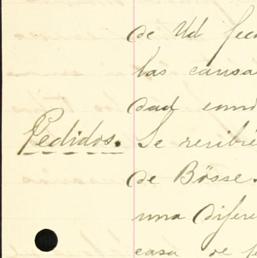 de Ud fec
las causa
dad
Pedidos. Se recibié
de Bösse.
una difere
casa de f